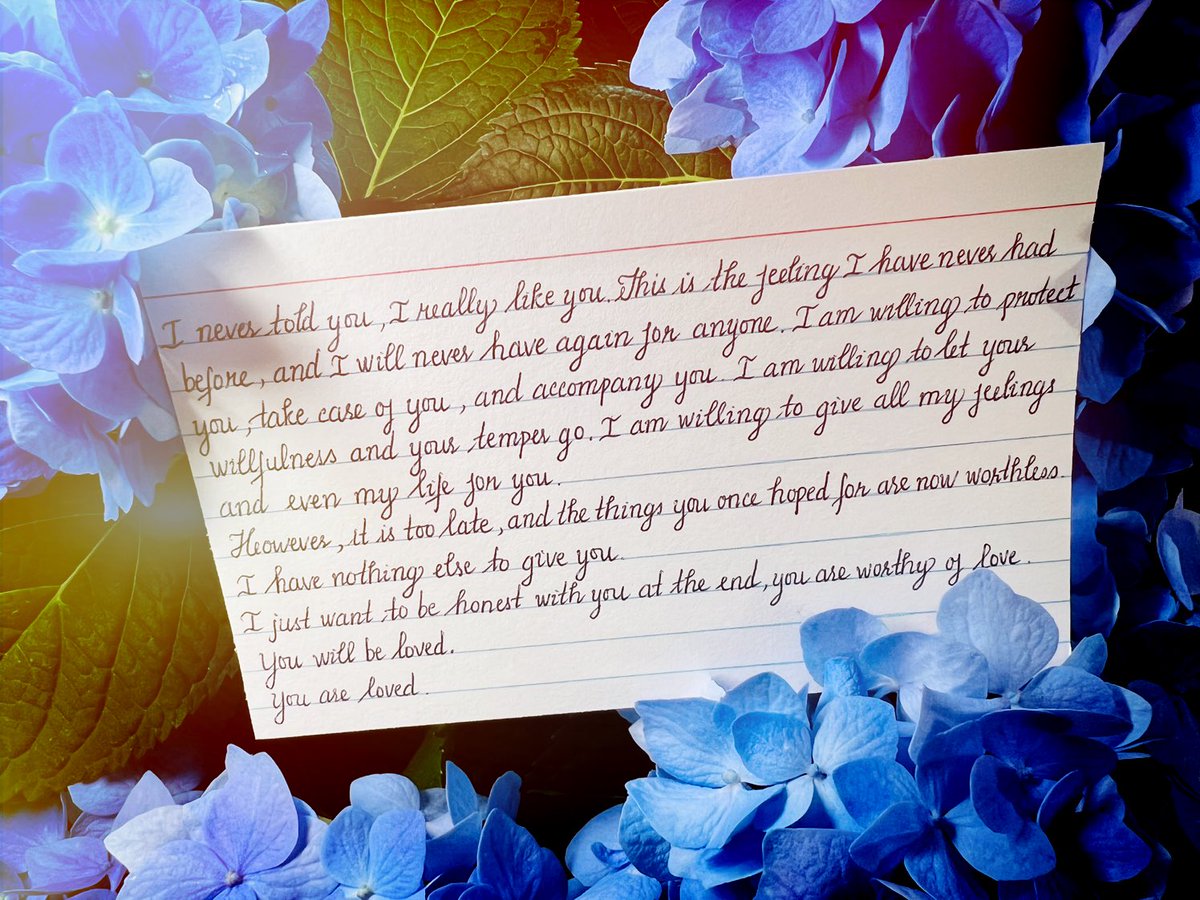 I never told you, I really like you. This is the feeling I have never had
before, and I will never have again for anyone. I am willing to protect
you, take care of you, and accompany you. I am willing to let your
willfulness and your temper go. I am willing to give all my feelings
and even my life for you.
However, it is too late, and the things you once hoped for are now worthless.
I have nothing else to give you.
I just want to be honest with you at the end, you are worthy of love.
You will be loved.
You are loved.